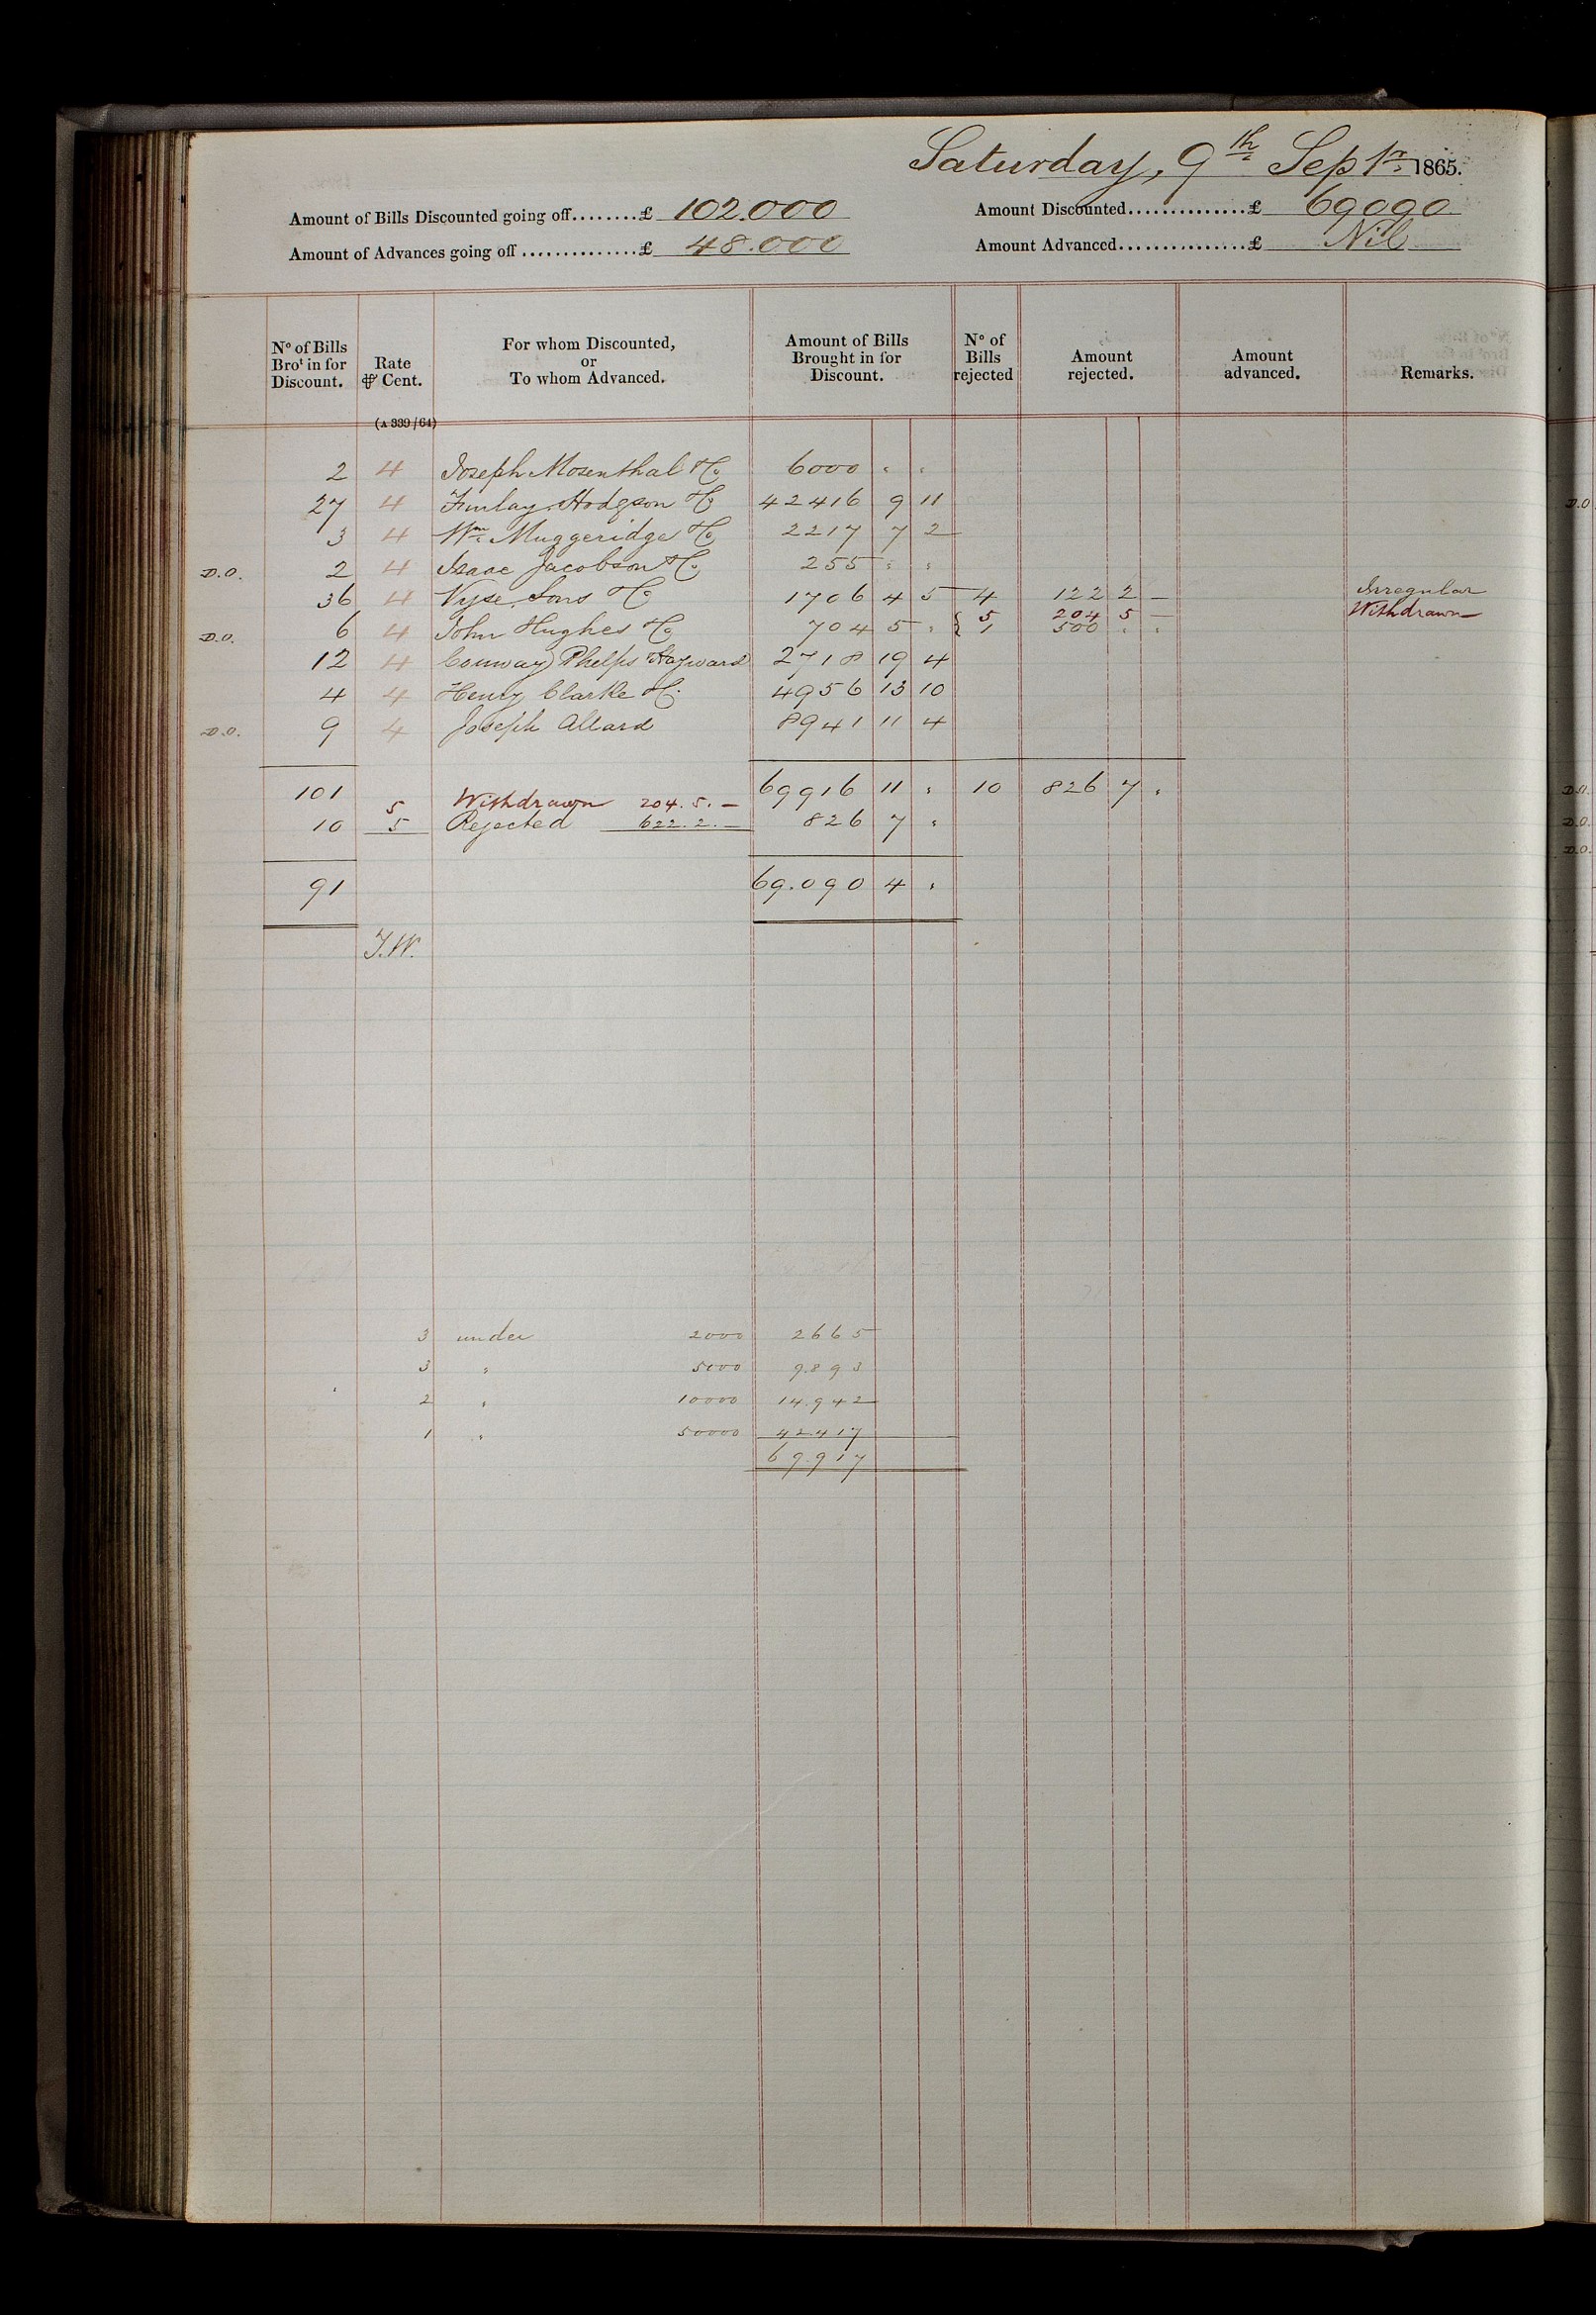 Saturday, 9th Septr. 1865.
Amount of Bills Discounted going off........£ 102.000 Amount Discounted..............£ 69090
Amount of Advances going off ..............£ 48.000 Amount Advanced................£ Nil
No of Bills Brot in for Discount. Rate ⅌ Cent. For whom Discounted, or To whom Advanced. Amount of Bills Brought in for Discount. No of Bills rejected Amount rejected. Amount advanced. Remarks.
(A 339/64)
2 4 Joseph Mosenthal & Co 6000 " "
27 4 Finlay Hodgson & Co 42416 9 11
3 4 Wm. Muggeridge & Co 2217 7 2
D.O. 2 4 Isaac Jacobson & Co 255 " "
36 4 Vyse Sons & Co 1706 4 5 4 122 2 — Irregular
5 204 5 — Withdrawn
D.O. 6 4 John Hughes & Co 704 5 " { 1 500 " "
12 4 Conway Phelps Hayward 2718 19 4
4 4 Henry Clarke & Co 4956 13 10
D.O. 9 4 Joseph Allard 8941 11 4
101 69916 11 " 10 826 7 "
5 Withdrawn 204.5.—
10 5 Rejected 622.2.— 826 7 "
91 69.090 4 "
J.W.
3 under 2000 2665
3 " 5000 9.893
2 " 10000 14.942
1 " 50000 42417
69.917